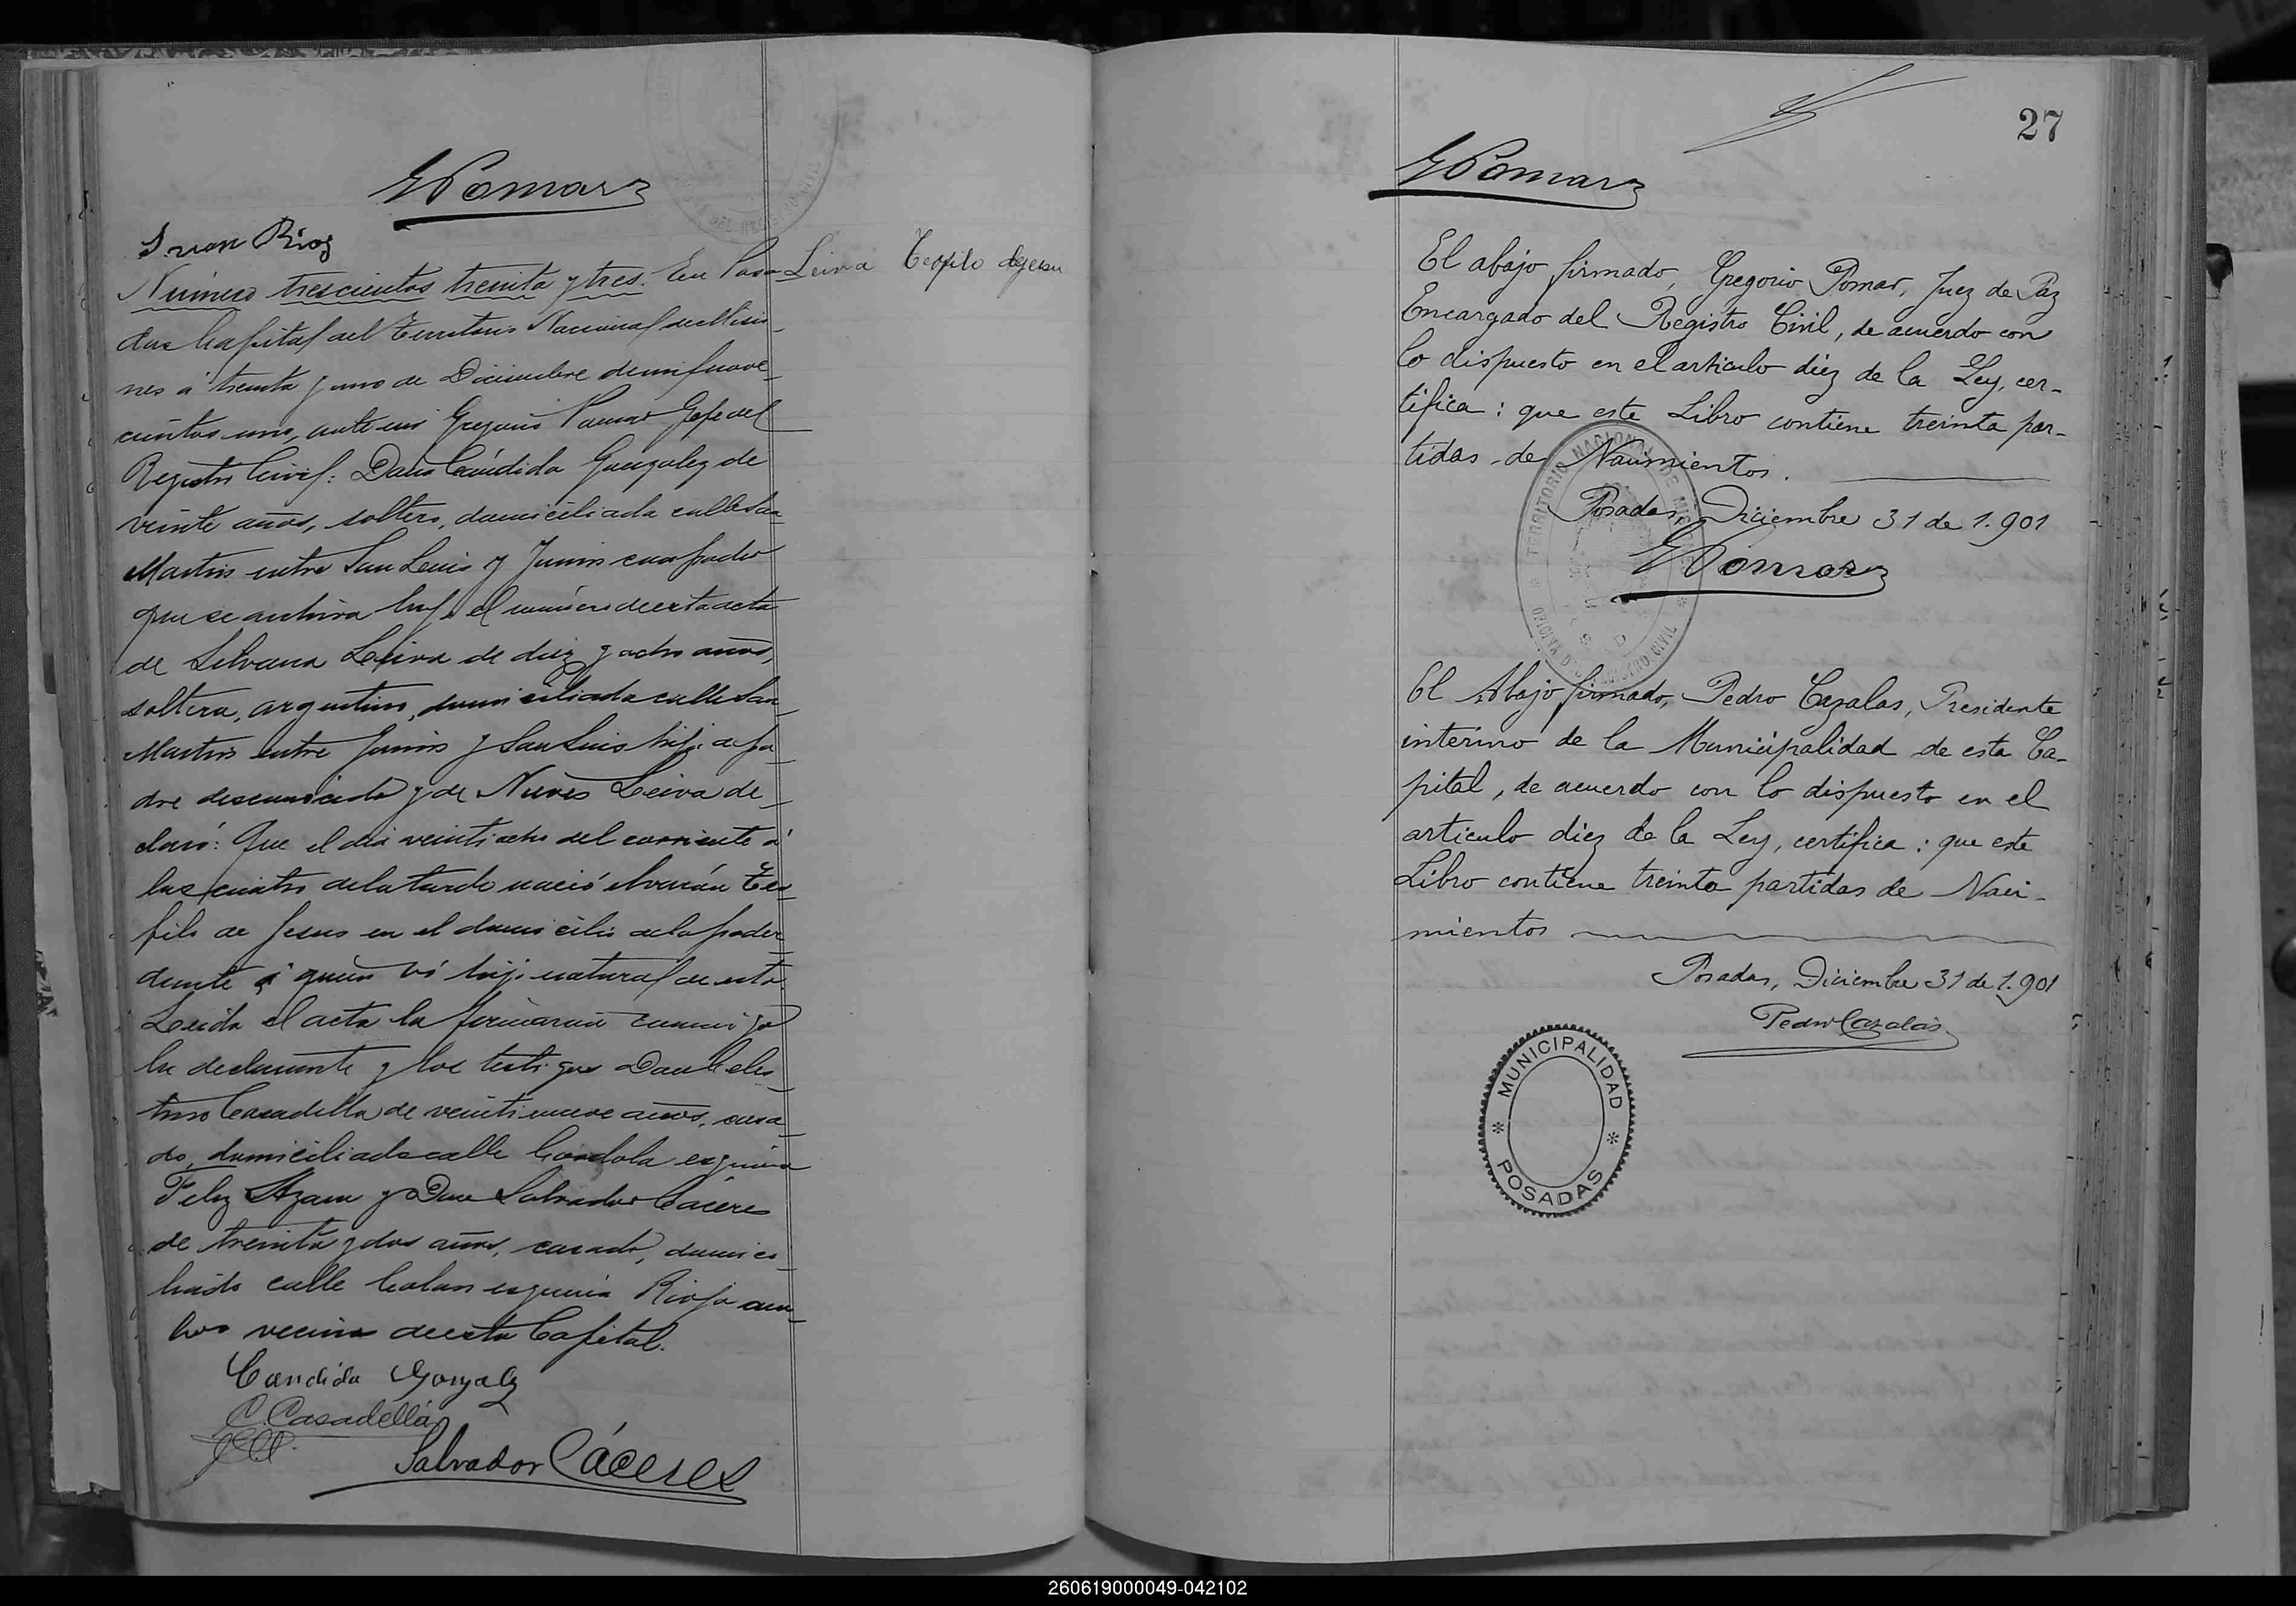 GPomar
Juan Rios
Número trescientos treinta y tres. En Posa-
Leiva Teofilo de Jesus
das Capital del Territorio Nacional de Misio-
nes á treinta y uno de Diciembre de mil nove-
cientos uno, ante mi Gregorio Pomar Gefe del
Registro Civil: Doña Cándida Gonzalez de
veinte años, soltera, domiciliada calle San
Martin entre San Luis y Junin con poder
que se archiva bajo el número de esta acta
de Silvana Leiva de diez y ocho años,
soltera, argentina, domiciliada calle San
Martin entre Junin y San Luis hija de pa-
dre desconocido y de Nieves Leiva de-
claró: Que el dia veintiocho del corriente á
las cuatro de la tarde nació el varón Teo-
filo de Jesus en el domicilio de la poder
dante á quien vi hijo natural de esta.
Leida el acta la firmaron conmigo
la declarante y los testigos Don Celes-
tino Casadella de veintinueve años, casa-
do, domiciliado calle Cordoba esquina
Feliz Azara y Don Salvador Cáceres
de treinta y dos años, casado, domici-
liado calle Colon esquina Rioja am-
bos vecinos de esta Capital.
Candida Gonzalez
C. Casadellá
Salvador Cáceres
27
GPomar
El abajo firmado, Gregorio Pomar, Juez de Paz
Encargado del Registro Civil, de acuerdo con
lo dispuesto en el articulo diez de la Ley, cer-
tifica: que este Libro contiene treinta par-
tidas de Nacimientos.
Posadas, Diciembre 31 de 1.901
GPomar
TERRITORIO NACIONAL DE MISIONES
OFICINA DEL REGISTRO CIVIL
El Abajo firmado, Pedro Cazalas, Presidente
interino de la Municipalidad de esta Ca-
pital, de acuerdo con lo dispuesto en el
articulo diez de la Ley, certifica: que este
Libro contiene treinta partidas de Naci-
mientos
Posadas, Diciembre 31 de 1.901
Pedro Cazalas
MUNICIPALIDAD
POSADAS
260619000049-042102